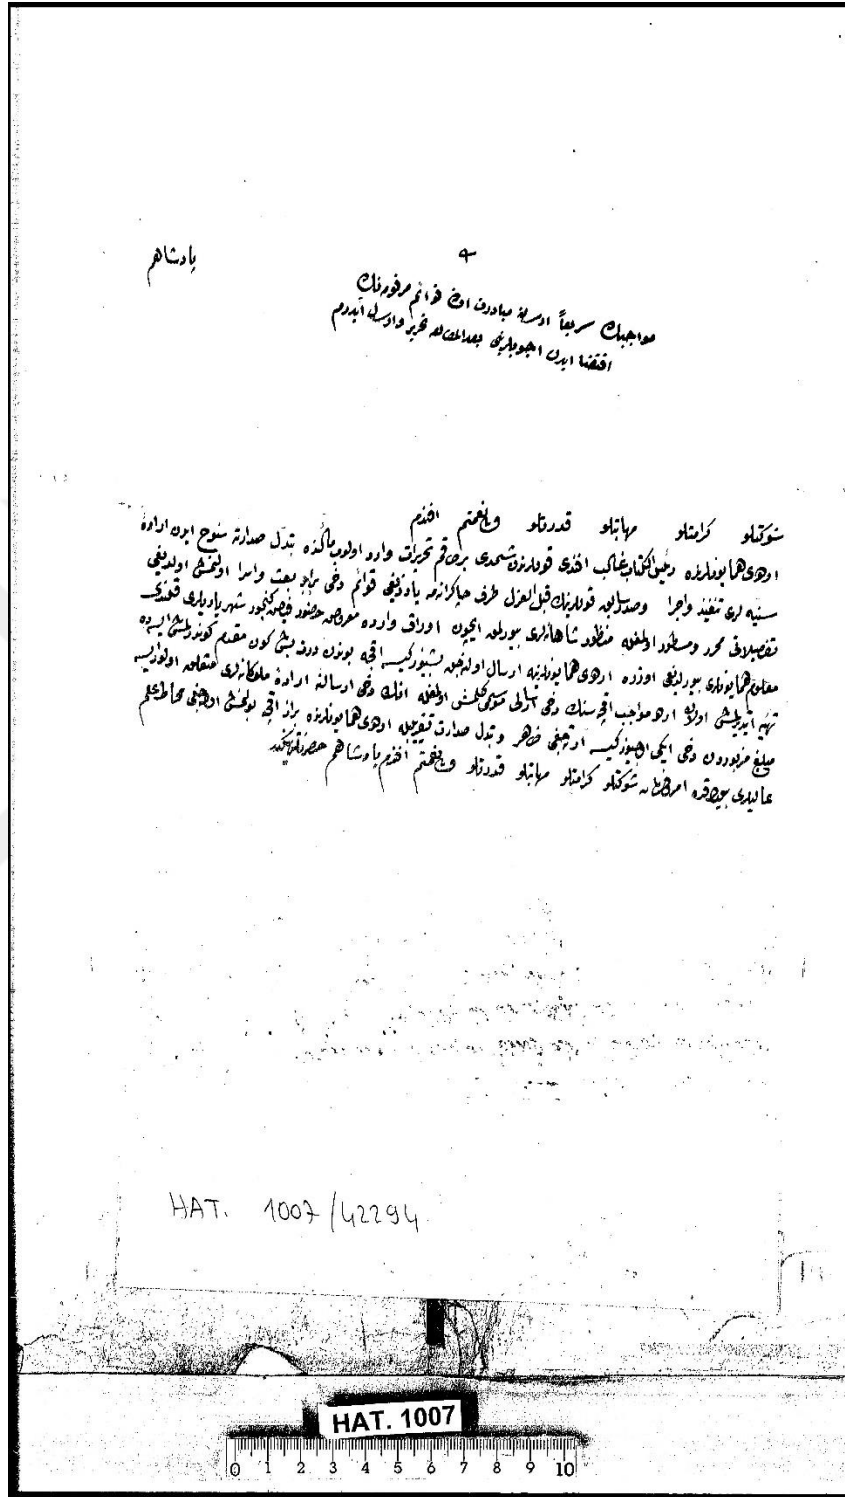 پادشاهم
مواجبك سريعاً ارسالنه مبادرت اولنه قوائم مرقومه نك
اقتضا ايدن اجوبه لرينى بعد المطالعه تحرير وارسال ايدرم
شوكتلو كرامتلو مهابتلو قدرتلو ولى نعمتم افندم
اردوى همايونلرنده رئيس الكتاب غالب افندى قوللرندن شمدى برطاقم تحريرات وارد اولوب مألنده تبدل صدارته سنوح ايدن اراده
سنيه لرى تنفيذ واجرا وصدر سابق قوللرينك قبل العزل طرف چاكرانه مه يازديغى قوائم دخى برابر بعث واسرا اولنمش اولديغى
تفصيلاتى محرر ومسطور اولمغله منظور شاهانه لرى بيورلمق ايچون اوراق وارده معروض حضور فيض كنجور شهرياريلرى قلندى
معلوم همايونلرى بيورلديغى اوزره اردوى همايونلرينه ارسال اولنه جق بشيوز كيسه اقچه بوندن درت بش كون مقدم كوندرلمش ايسه ده
تهيه ايتديرلمش اولان اردو مواجب اقچه سنك دخى ارسالى موسمى كلمش اولمغله انك دخى ارسالنه اراده ملوكانه لرى متعلق اولور ايسه
مبلغ مزبوردن دخى ايكى اچيوز كيسه ارته جغى ظاهر وتبدل صدارت تقريبيله اردوى همايونلرنده براز اقچه بولنمش اوله جغى محاط علم
عاليلرى بيورلدقده امر وفرمان شوكتلو كرامتلو مهابتلو قدرتلو ولى نعمتم افندم پادشاهم حضرتلرينكدر
HAT. 1007/42294
HAT. 1007
0 1 2 3 4 5 6 7 8 9 10